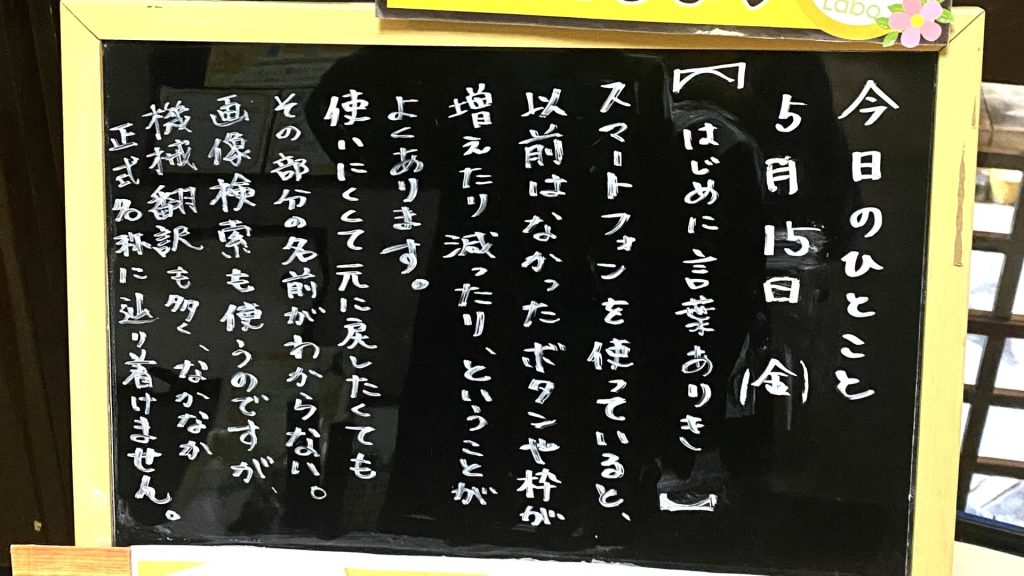 Labo
今日のひとこと
5月15日(金)
【はじめに言葉ありき】
スマートフォンを使っていると、
以前はなかったボタンや枠が
増えたり減ったり、ということが
よくあります。
使いにくくて元に戻したくても
その部分の名前がわからない。
画像検索も使うのですが、
機械翻訳も多く、なかなか
正式名称に辿り着けません。